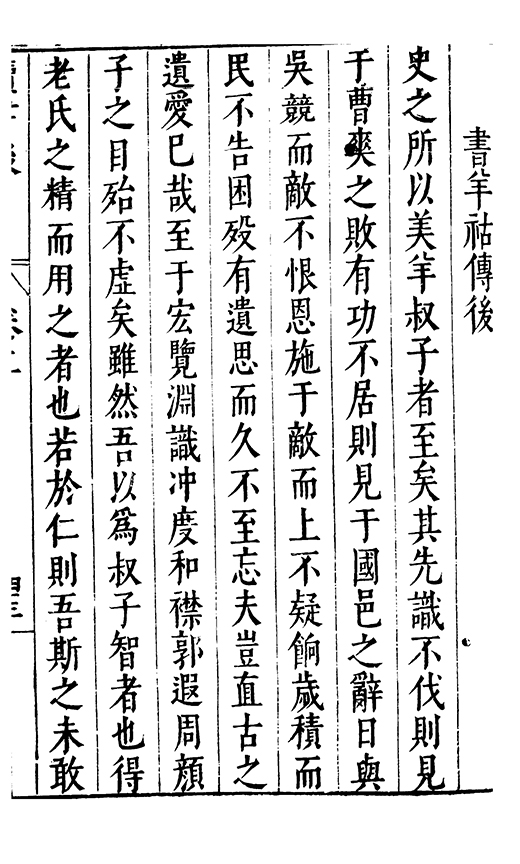 書羊祜傳後
史之所以美羊叔子者至矣其先識不伐則見
于曹爽之敗有功不居則見于國邑之辭日與
吳競而敵不恨恩施于敵而上不疑餉歲積而
民不告困殁有遺思而久不至忘夫豈直古之
遺愛已哉至于宏覽淵識冲度和襟郭遐周顏
子之目殆不虛矣雖然吾以為叔子智者也得
老氏之精而用之者也若於仁則吾斯之未敢